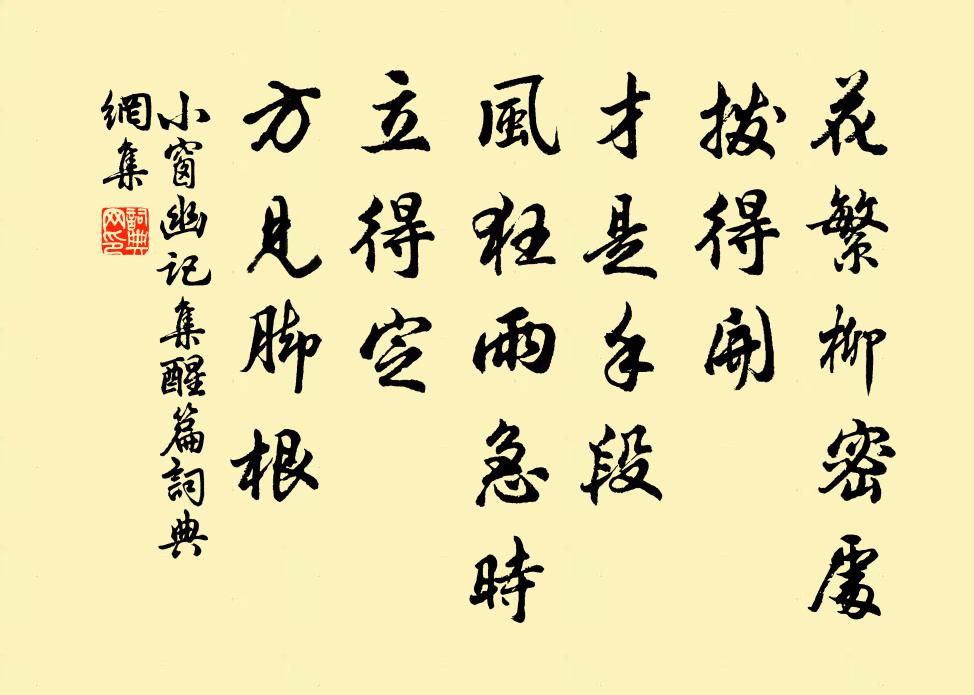 花繁柳密處
撥得開
才是手段
風狂雨急時
立得定
方見脚根
小窗幽记集醒篇詞典
網集
詞典網印